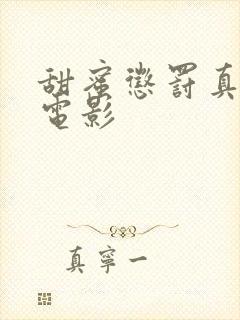 甜蜜懲罰真
電影
真寧一